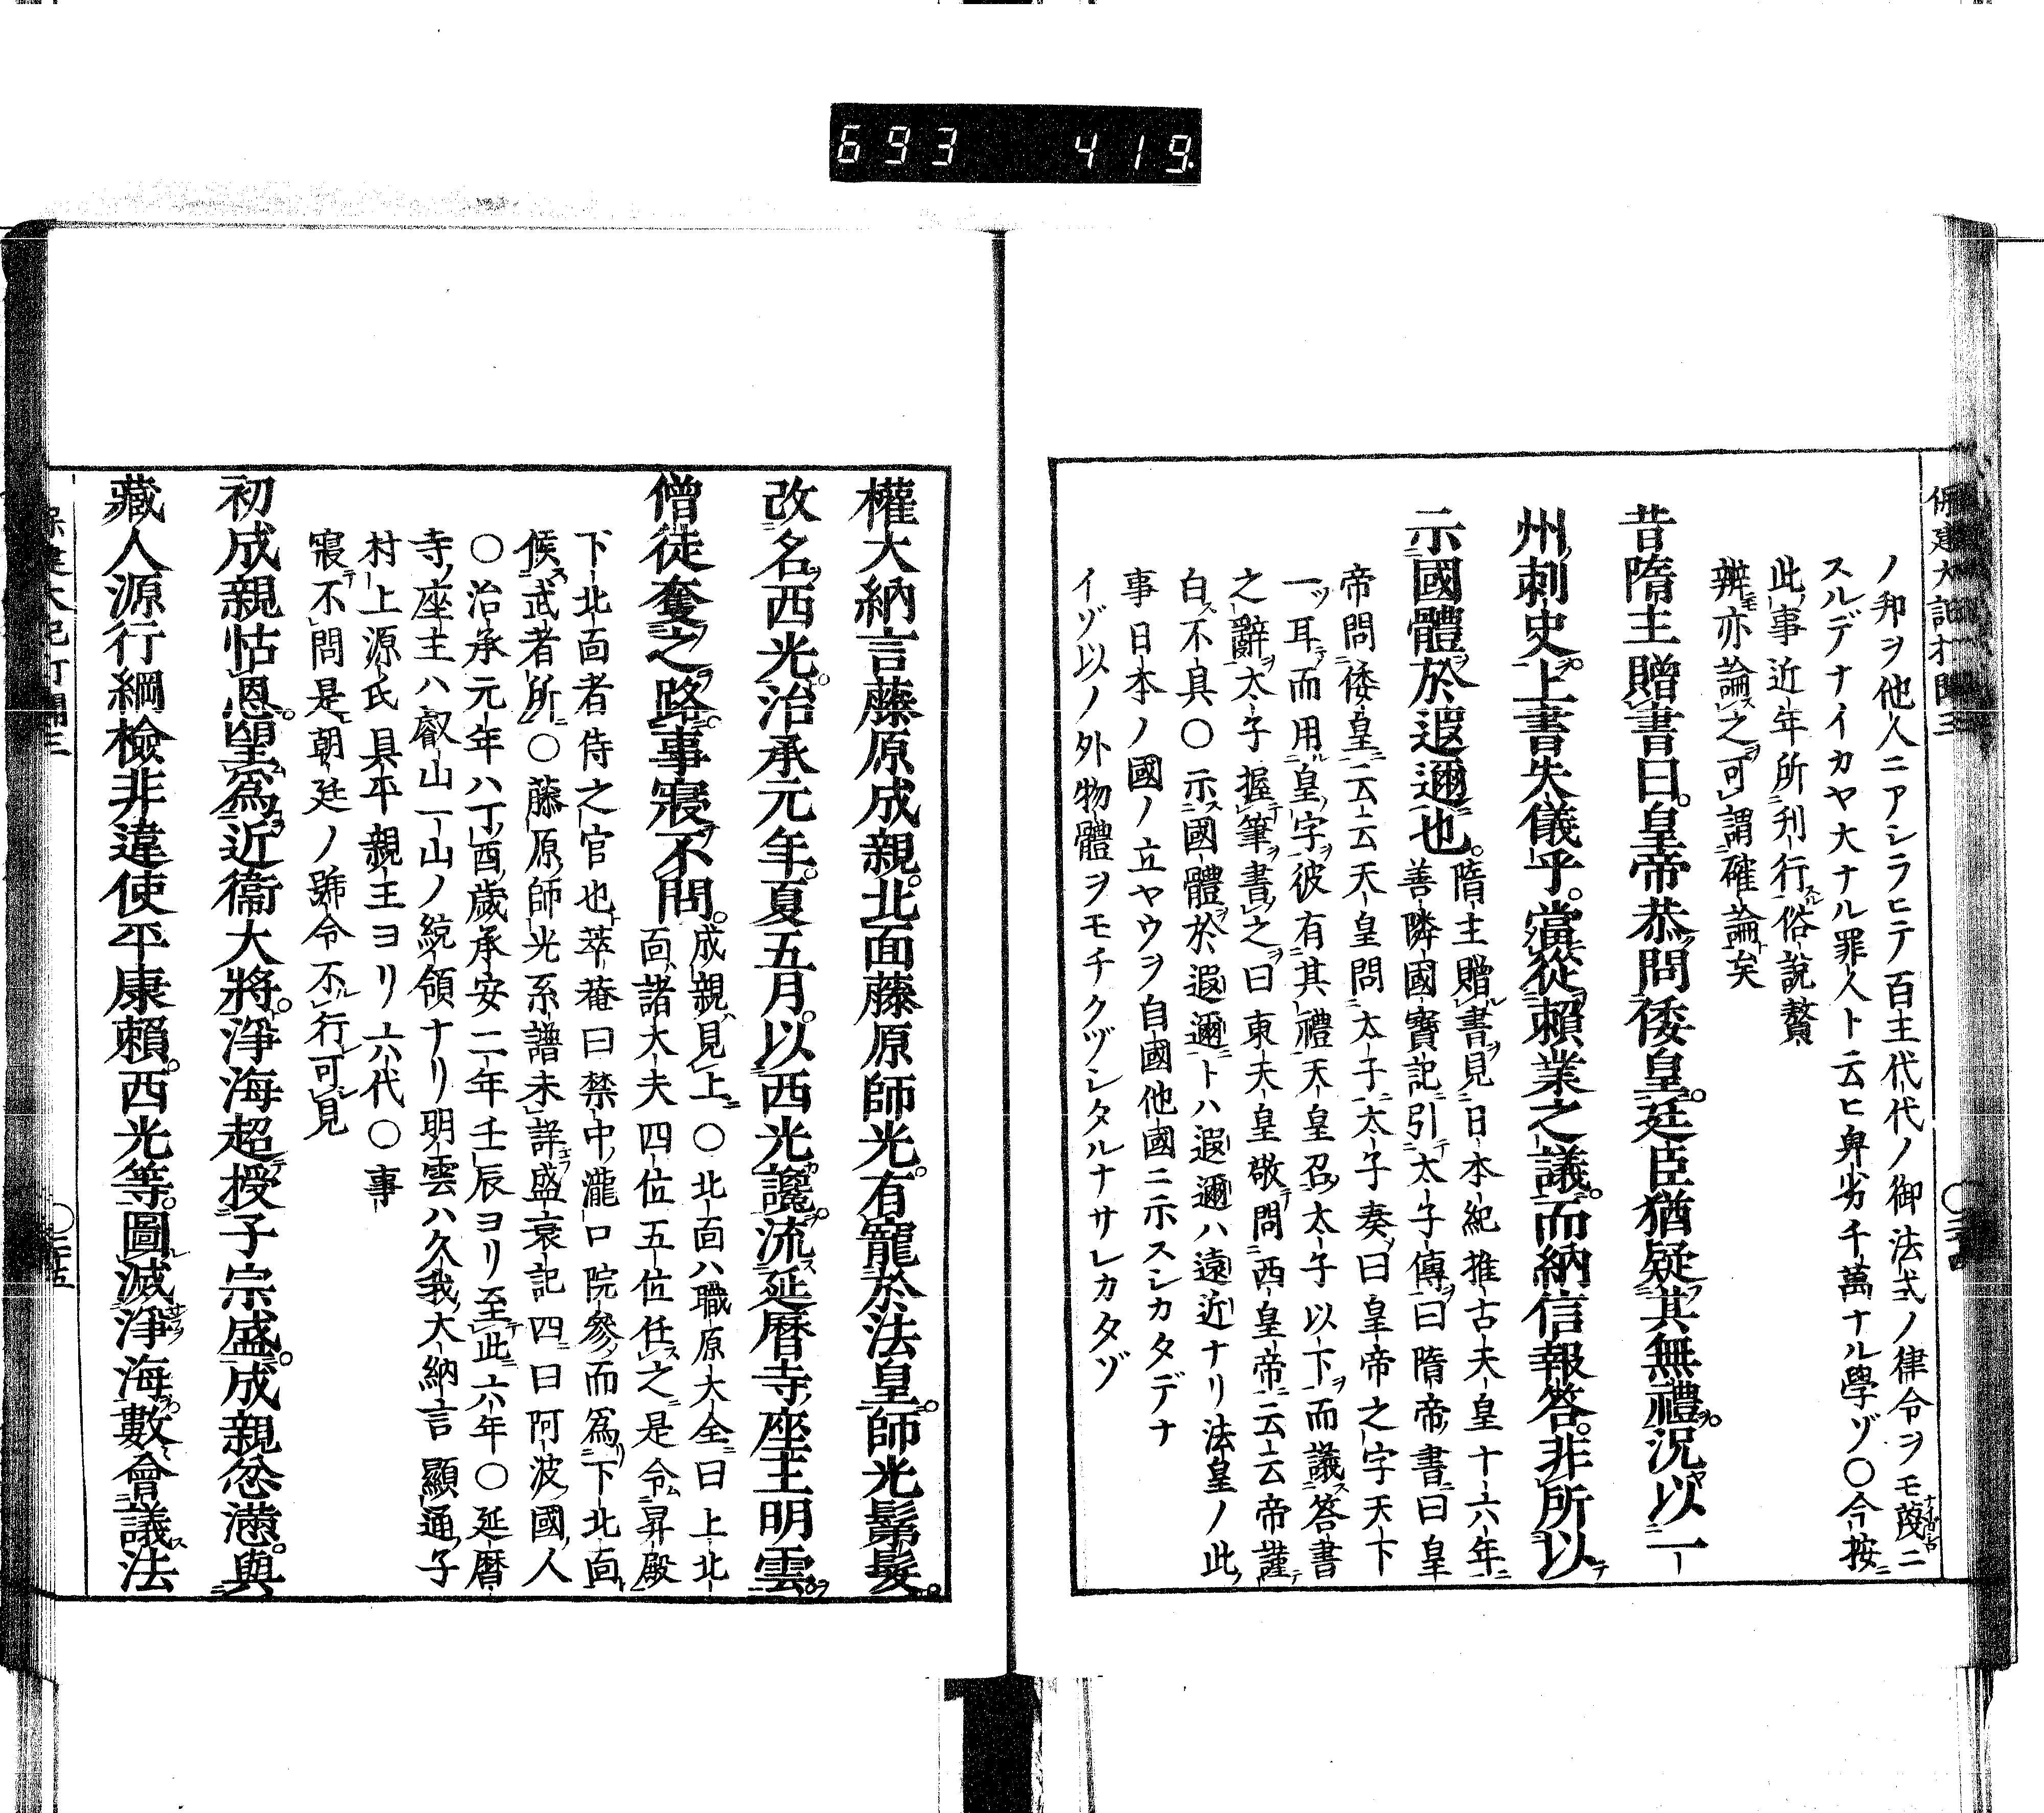 693 419
保建大記打聞三
ノ邦ヲ他人ニアシラヒテ百主代代ノ御法式ノ律令ヲモ蔑ニ
スルデナイカヤ大ナル罪人ト云ヒ卑劣千萬ナル學ゾ〇今按
此事近年所利行俗說贅
辨亦論之可謂確論矣
昔隋主贈書曰皇帝恭問倭皇。廷臣猶疑其無禮。況以一
州刺史上書失儀乎。當從賴業之議。而納信報答。非所以
示國體於遐邇也。隋主贈書見日本紀推古天皇十六年
善隣國寶記引太子傳曰隋帝書曰皇
帝問倭皇云云天皇問太子太子奏曰皇帝之字天下
一ツ耳而用皇字彼有其禮天皇召太子以下而議答書
之辭太子握筆書之曰東天皇敬問西皇帝云云帝謹
白不具〇示國體於遐邇トハ遐邇ハ遠近ナリ法皇ノ此
事日本ノ國ノ立ヤウヲ自國他國ニ示スシカタデナ
イゾ以ノ外物體ヲモチクヅシタルナサレカタゾ
權大納言藤原成親。北面藤原師光。有寵於法皇。師光鬀髮。
改名西光。治承元年。夏五月。以西光讒。流延曆寺座主明雲。
僧徒奪之路。事寢不問。成親見上〇北面ハ職原大全曰上北
面諸大夫四位五位任之是令昇殿
下北面者侍之官也萃菴曰禁中瀧口院參而爲下北面
候武者所〇藤原師光系譜未詳盛衰記四曰阿波國人
〇治承元年ハ丁酉歲承安二年壬辰ヨリ至此六年〇延曆
寺座主ハ叡山一山ノ統領ナリ明雲ハ久我大納言顯通子
村上源氏具平親王ヨリ六代〇事
寢不問是朝廷ノ號令不行可見
初成親怙恩。望爲近衞大將。淨海超授子宗盛。成親忿懣。與
藏人源行綱檢非違使平康賴。西光等。圖滅淨海。數會議法
保建大記打聞三